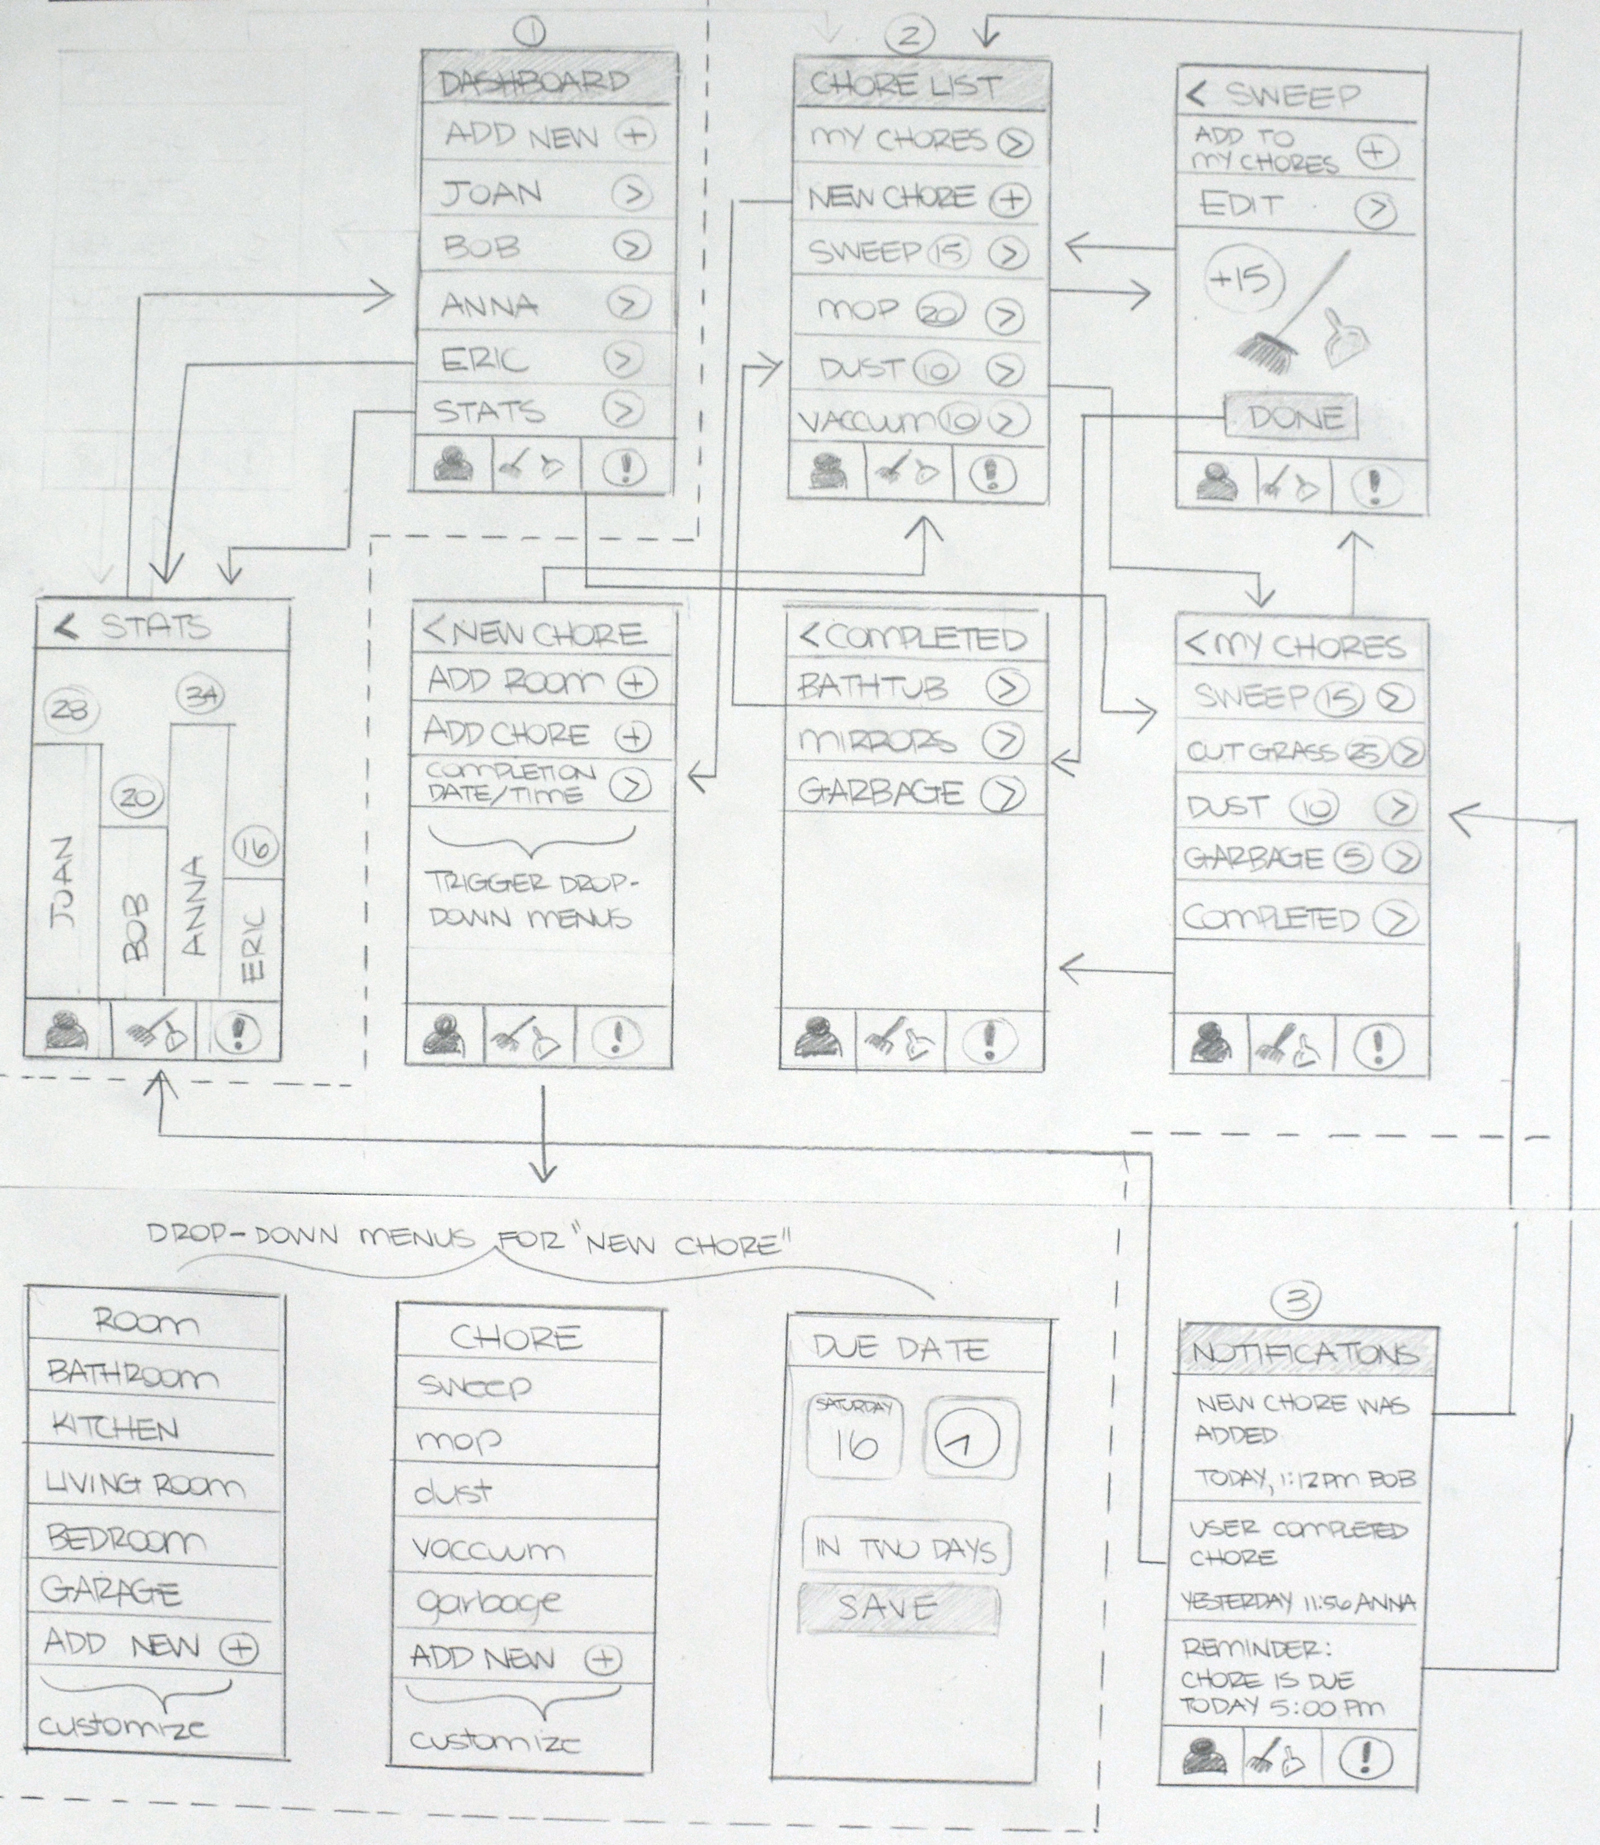 1
DASHBOARD
ADD NEW +
JOAN >
BOB >
ANNA >
ERIC >
STATS >
!
2
CHORE LIST
MY CHORES >
NEW CHORE +
SWEEP 15 >
MOP 20 >
DUST 10 >
VACCUUM 10 >
!
< SWEEP
ADD TO
MY CHORES +
EDIT >
+15
DONE
!
< STATS
28
34
20
16
JOAN
BOB
ANNA
ERIC
!
< NEW CHORE
ADD ROOM +
ADD CHORE +
COMPLETION
DATE/TIME >
TRIGGER DROP-
DOWN MENUS
!
< COMPLETED
BATHTUB >
MIRRORS >
GARBAGE >
!
< MY CHORES
SWEEP 15 >
CUT GRASS 25 >
DUST 10 >
GARBAGE 5 >
COMPLETED >
!
DROP-DOWN MENUS FOR "NEW CHORE"
ROOM
BATHROOM
KITCHEN
LIVING ROOM
BEDROOM
GARAGE
ADD NEW +
customize
CHORE
sweep
mop
dust
vaccuum
garbage
ADD NEW +
customize
DUE DATE
SATURDAY
16
IN TWO DAYS
SAVE
3
NOTIFICATONS
NEW CHORE WAS
ADDED
TODAY, 1:12PM BOB
USER COMPLETED
CHORE
YESTERDAY 11:56 ANNA
REMINDER:
CHORE IS DUE
TODAY 5:00 PM
!